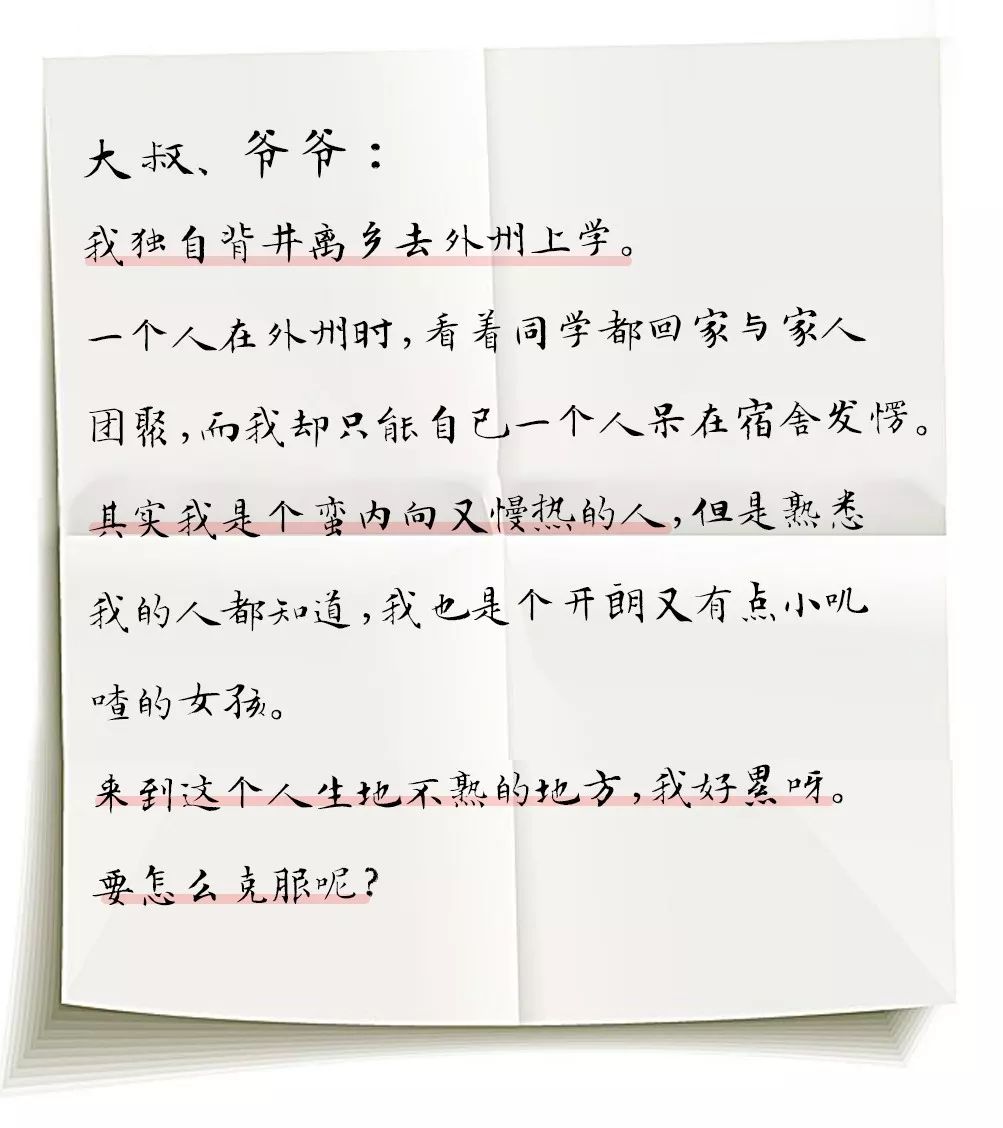 大叔、爷爷：
我独自背井离乡去外州上学。
一个人在外州时，看着同学都回家与家人
团聚，而我却只能自己一个人呆在宿舍发愣。
其实我是个蛮内向又慢热的人，但是熟悉
我的人都知道，我也是个开朗又有点小叽
喳的女孩。
来到这个人生地不熟的地方，我好累呀。
要怎么克服呢？